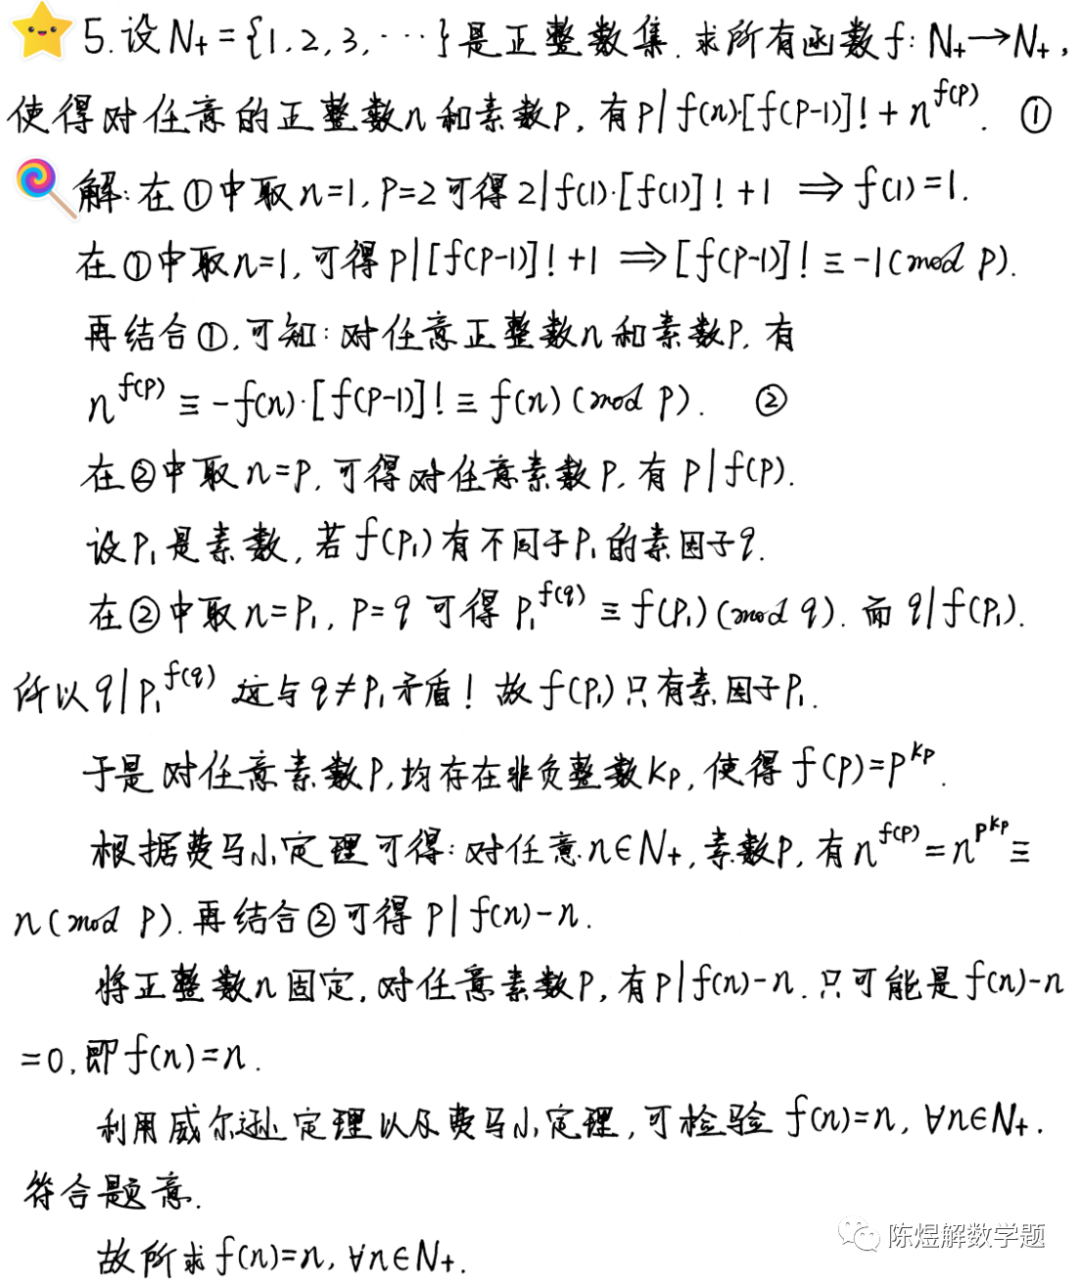 5.设N₊={1,2,3,…}是正整数集.求所有函数f:N₊→N₊,
使得对任意的正整数n和素数p,有p|f(n)·[f(p-1)]!+n^{f(p)}. ①
解:在①中取n=1,p=2可得2|f(1)·[f(1)]!+1 ⇒ f(1)=1.
在①中取n=1,可得p|[f(p-1)]!+1 ⇒ [f(p-1)]!≡-1(mod p).
再结合①,可知:对任意正整数n和素数p,有
n^{f(p)}≡-f(n)·[f(p-1)]!≡f(n)(mod p). ②
在②中取n=p,可得对任意素数p,有p|f(p).
设p₁是素数,若f(p₁)有不同于p₁的素因子q.
在②中取n=p₁,p=q可得p₁^{f(q)}≡f(p₁)(mod q).而q|f(p₁).
所以q|p₁^{f(q)}这与q≠p₁矛盾!故f(p₁)只有素因子p₁.
于是对任意素数p,均存在非负整数Kp,使得f(p)=p^{Kp}.
根据费马小定理可得:对任意n∈N₊,素数p,有n^{f(p)}=n^{p^{Kp}}≡
n(mod p).再结合②可得p|f(n)-n.
将正整数n固定,对任意素数p,有p|f(n)-n.只可能是f(n)-n
=0,即f(n)=n.
利用威尔逊定理以及费马小定理,可检验f(n)=n,∀n∈N₊.
符合题意.
故所求f(n)=n,∀n∈N₊.
陈煜解数学题